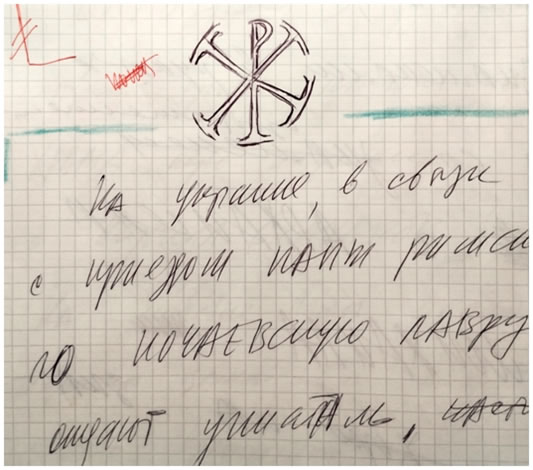 На украине, в связи
с приездом папы римско
го почаевскую лавру
ощают униаты,